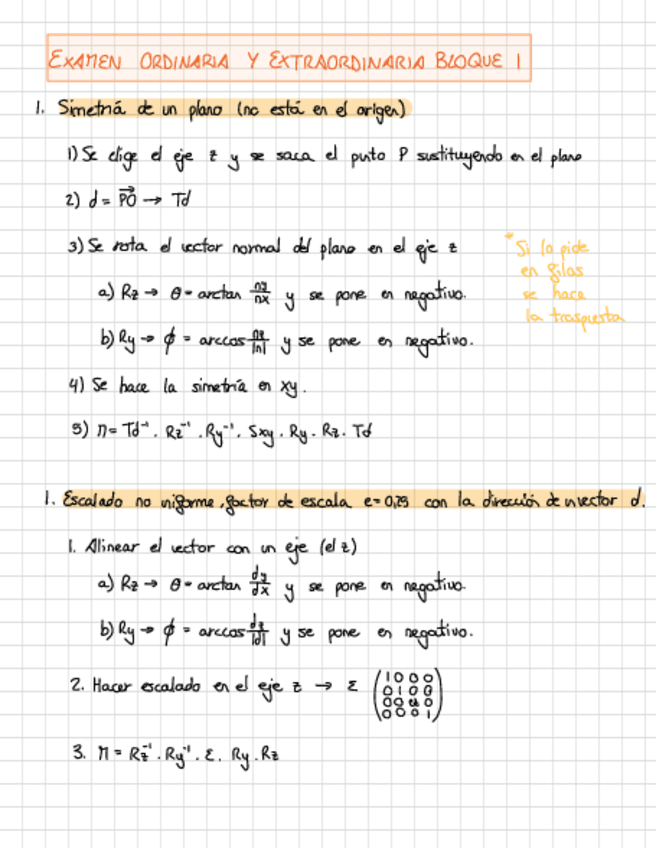 EXAMEN ORDINARIA Y EXTRAORDINARIA BLOQUE 1
1. Simetría de un plano (no está en el origen)
1) Se elige el eje z y se saca el punto P sustituyendo en el plano
2) d = PO → Td
3) Se rota el vector normal del plano en el eje z
a) Rz → θ = arctan ny/nx y se pone en negativo.
b) Ry → φ = arccos nz/|n| y se pone en negativo.
* Si lo pide
en filas
se hace
la traspuesta
4) Se hace la simetría en xy.
5) M = Td⁻¹ . Rz⁻¹ . Ry⁻¹ . Sxy . Ry . Rz . Td
1. Escalado no uniforme, factor de escala e = 0,75 con la dirección de un vector d.
1. Alinear el vector con un eje (el z)
a) Rz → θ = arctan dy/dx y se pone en negativo.
b) Ry → φ = arccos dz/|d| y se pone en negativo.
2. Hacer escalado en el eje z → E
1 0 0 0
0 1 0 0
0 0 0
0 0 0 1
3. M = Rz⁻¹ . Ry⁻¹ . E . Ry . Rz